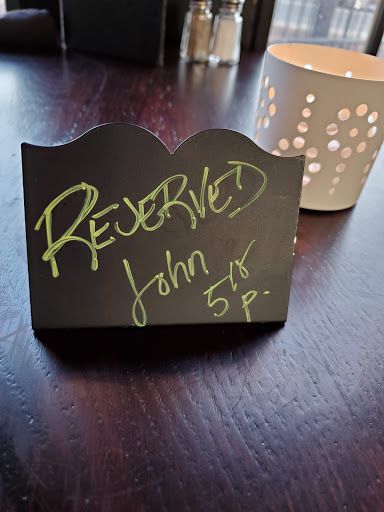 RESERVED
John
5/8
p.